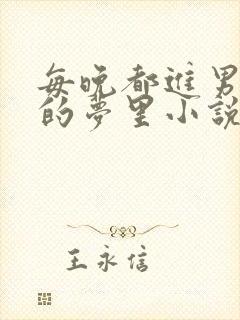 每晚都进男
的夢里小說
王永信